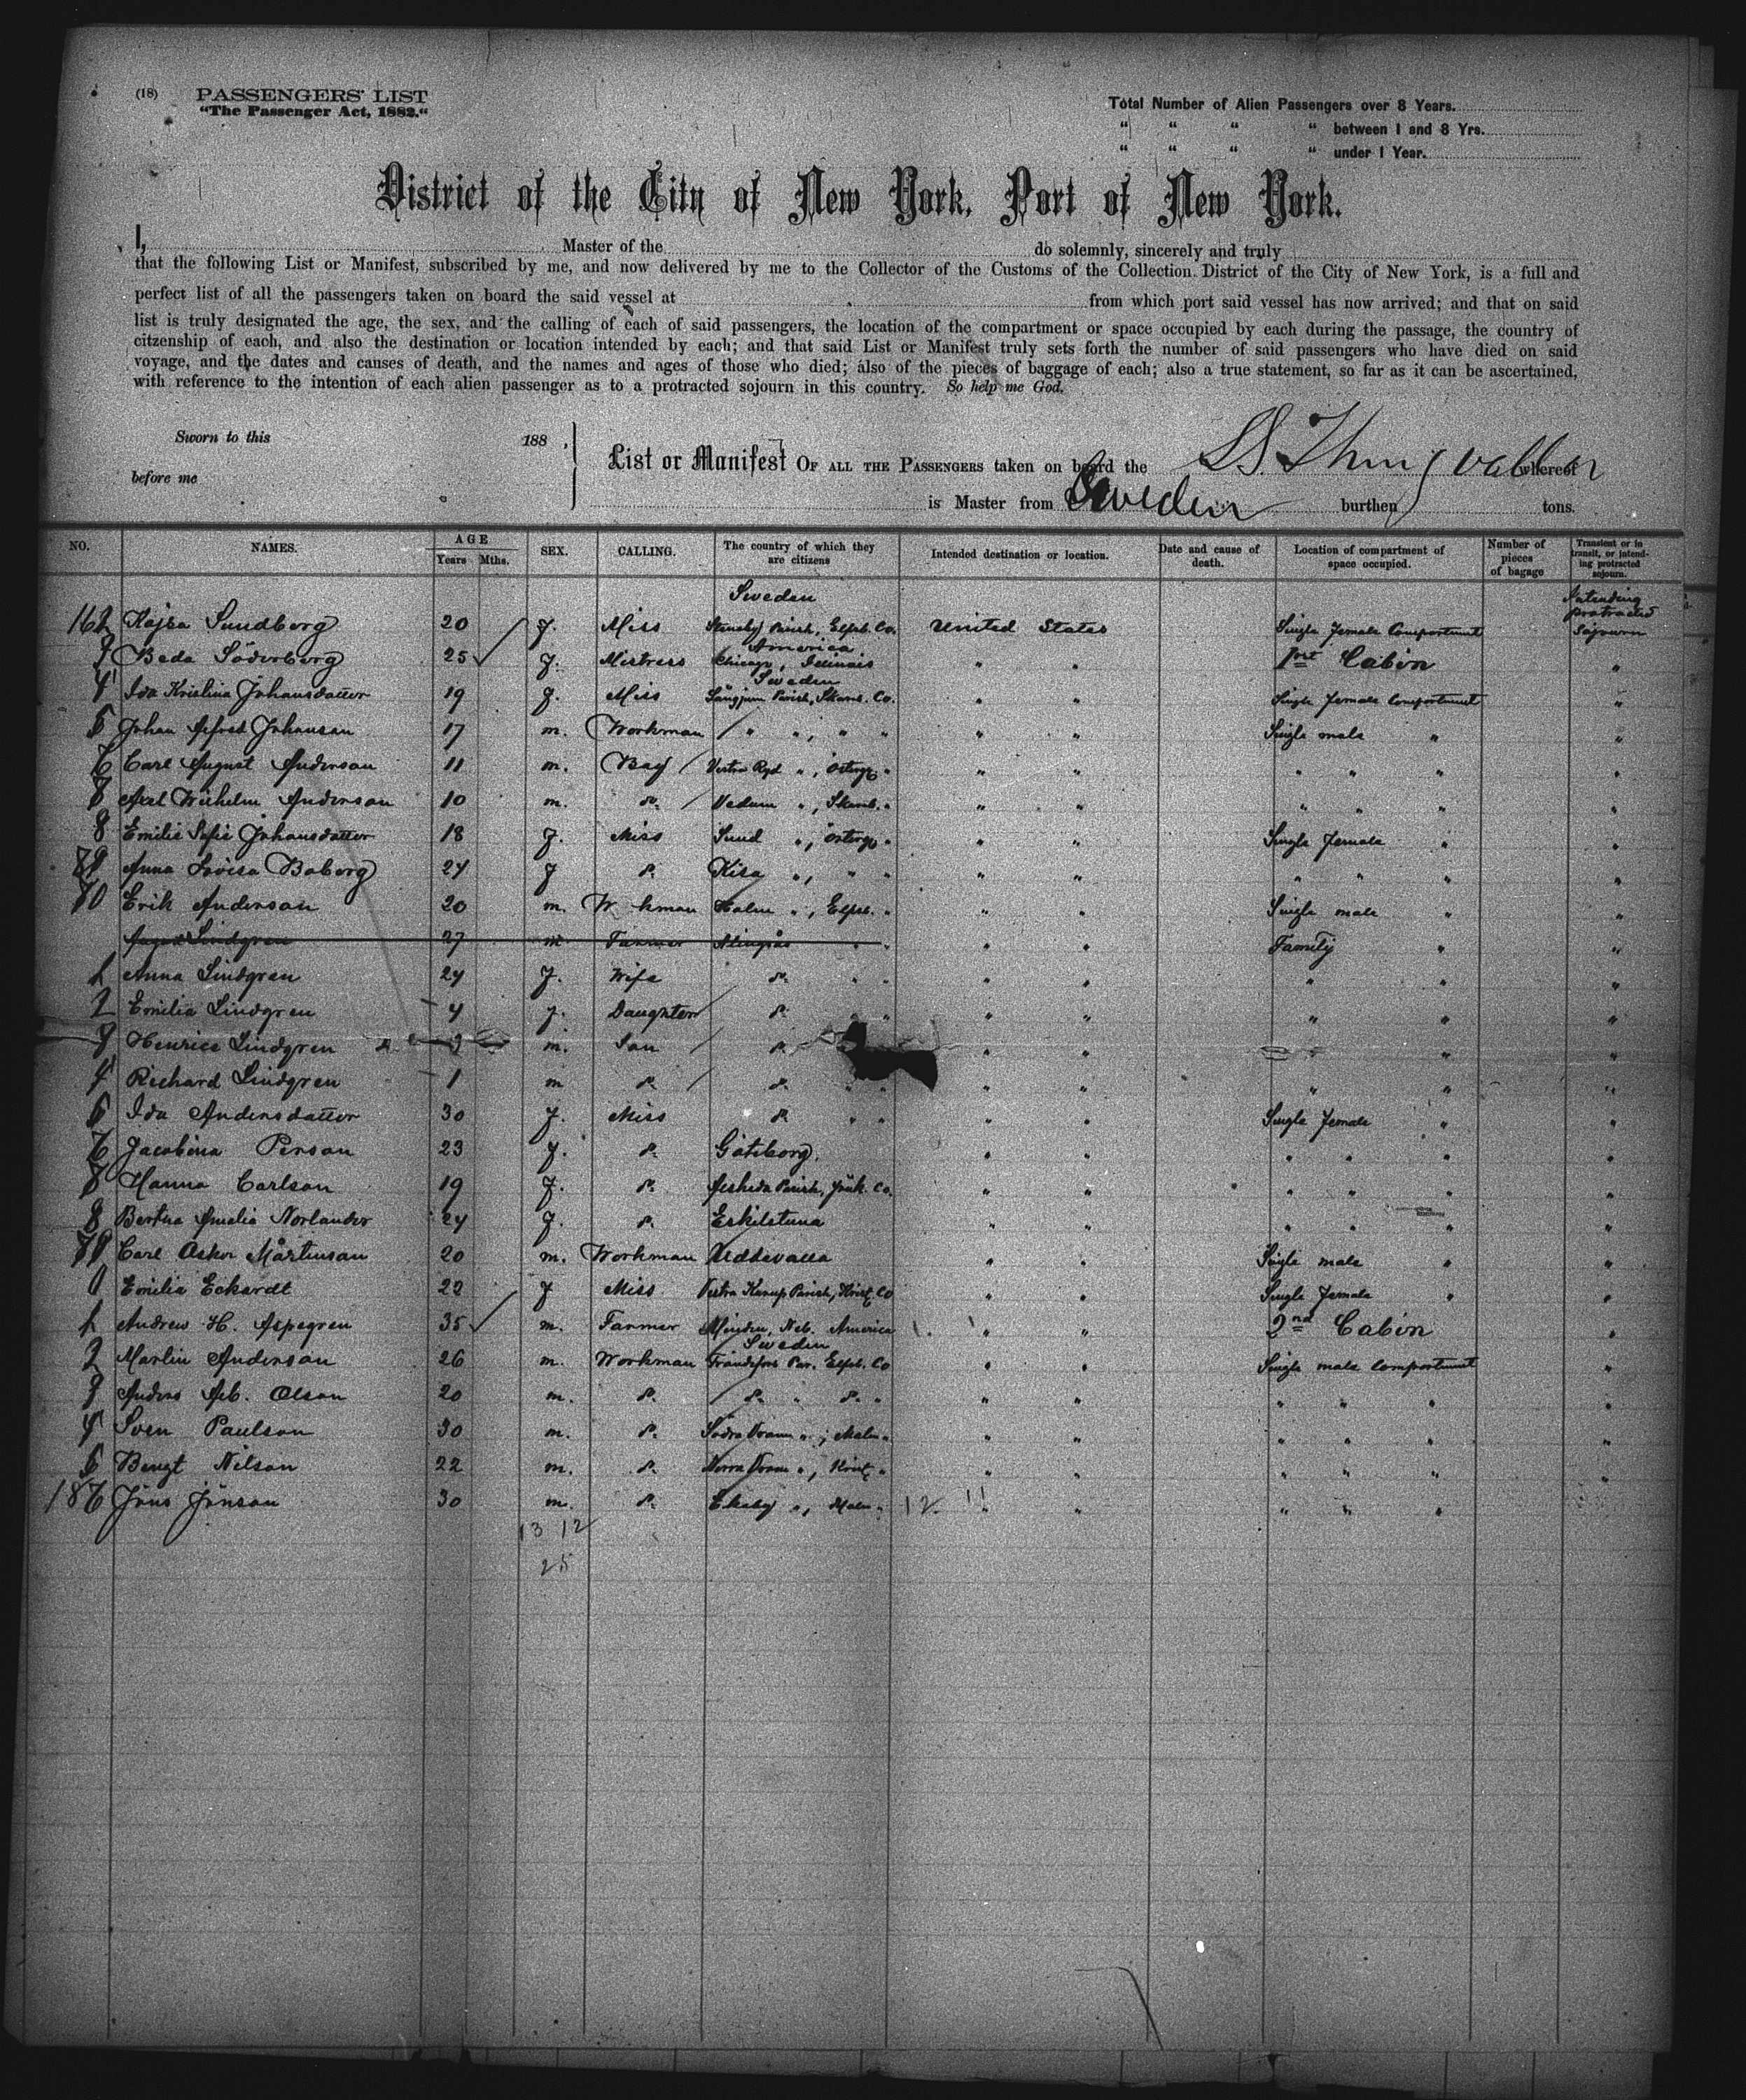 (18) PASSENGERS' LIST
"The Passenger Act, 1882."
Total Number of Alien Passengers over 8 Years.
" " " " between 1 and 8 Yrs.
" " " " under 1 Year.
District of the City of New York, Port of New York.
I, Master of the do solemnly, sincerely and truly
that the following List or Manifest, subscribed by me, and now delivered by me to the Collector of the Customs of the Collection District of the City of New York, is a full and
perfect list of all the passengers taken on board the said vessel at from which port said vessel has now arrived; and that on said
list is truly designated the age, the sex, and the calling of each of said passengers, the location of the compartment or space occupied by each during the passage, the country of
citzenship of each, and also the destination or location intended by each; and that said List or Manifest truly sets forth the number of said passengers who have died on said
voyage, and the dates and causes of death, and the names and ages of those who died; also of the pieces of baggage of each; also a true statement, so far as it can be ascertained,
with reference to the intention of each alien passenger as to a protracted sojourn in this country. So help me God.
Sworn to this 188 .
before me
List or Manifest OF ALL THE PASSENGERS taken on board the SS. Thingvalla whereof
is Master from Sweden burthen tons.
NO. NAMES. AGE Years Mths. SEX. CALLING. The country of which they are citizens Intended destination or location. Date and cause of death. Location of compartment of space occupied. Number of pieces of bagage Transient or in transit, or intending protracted sojourn.
Sweden Intending protracted
162 Kajsa Sundberg 20 f. Miss Parish, Elfsb. Co. United States Single female Compartment Sojourn
America
3 Beda Söderberg 25 f. Mistress Chicago, Illinois " " 1rst Cabin "
Sweden
4 Ida Kristina Johansdatter 19 f. Miss Långjum Parish, Skarab. Co. " " Single female Compartment "
5 Johan Alfred Johanson 17 m. Workman " " , " " " " Single male " "
6 Carl August Anderson 11 m. Boy Vestra Ryd " , Östergö " " " " " " "
7 Axel Wilhelm Anderson 10 m. do. Vedum " , Skarab. " " " " " " "
8 Emilie Sofie Johansdatter 18 f. Miss Sund " , Östergö " " " Single female " "
9 Anna Lovisa Boberg 24 f do. Kisa " , " " " " " " " "
70 Erik Anderson 20 m. W kman Holm " , Elfsb. " " " Single male " "
August Lindgren 27 m Farmer Alingsås " " " " Family " "
1 Anna Lindgren 24 f. Wife do. " " " " " " "
2 Emilia Lindgren 4 f. Daughter do. " " " " " " "
3 Henrice Lindgren 3 m. Son do. " " " " "
4 Richard Lindgren 1 m do. do. " " " " " " "
5 Ida Andersdatter 30 f. Miss do. " " " " Single female " "
6 Jacobina Person 23 f. do. Göteborg. " " " " " "
7 Hanna Carlson 19 f. do. Parish, Jönk. Co. " " " " " "
8 Bertha Amalia Norlander 24 f. do. Eskilstuna " " " " " "
79 Carl Oskar Mårtenson 20 m. Workman Uddevalla " " Single male " "
0 Emilia Eckardt 22 f Miss Vestra Karup Parish, Krist. Co " " Single female " "
1 Andrew H. Aspegren 35 m. Farmer Minden, Neb. America " " 2nd Cabin "
Sweden
2 Martin Anderson 26 m. Workman Par. Elfsb. Co " " Single male Compartment "
3 Anders Alb. Olson 20 m. do. do. " do. " " " " " " "
4 Sven Paulson 30 m. do. Södra " , Malm " " " " " " "
5 Bengt Nilson 22 m. do. Norra " , Krist " " " " " " "
186 Jöns Jönson 30 m. do. Ekeby " , Malm " 12 11 " " " " " "
13 12
25